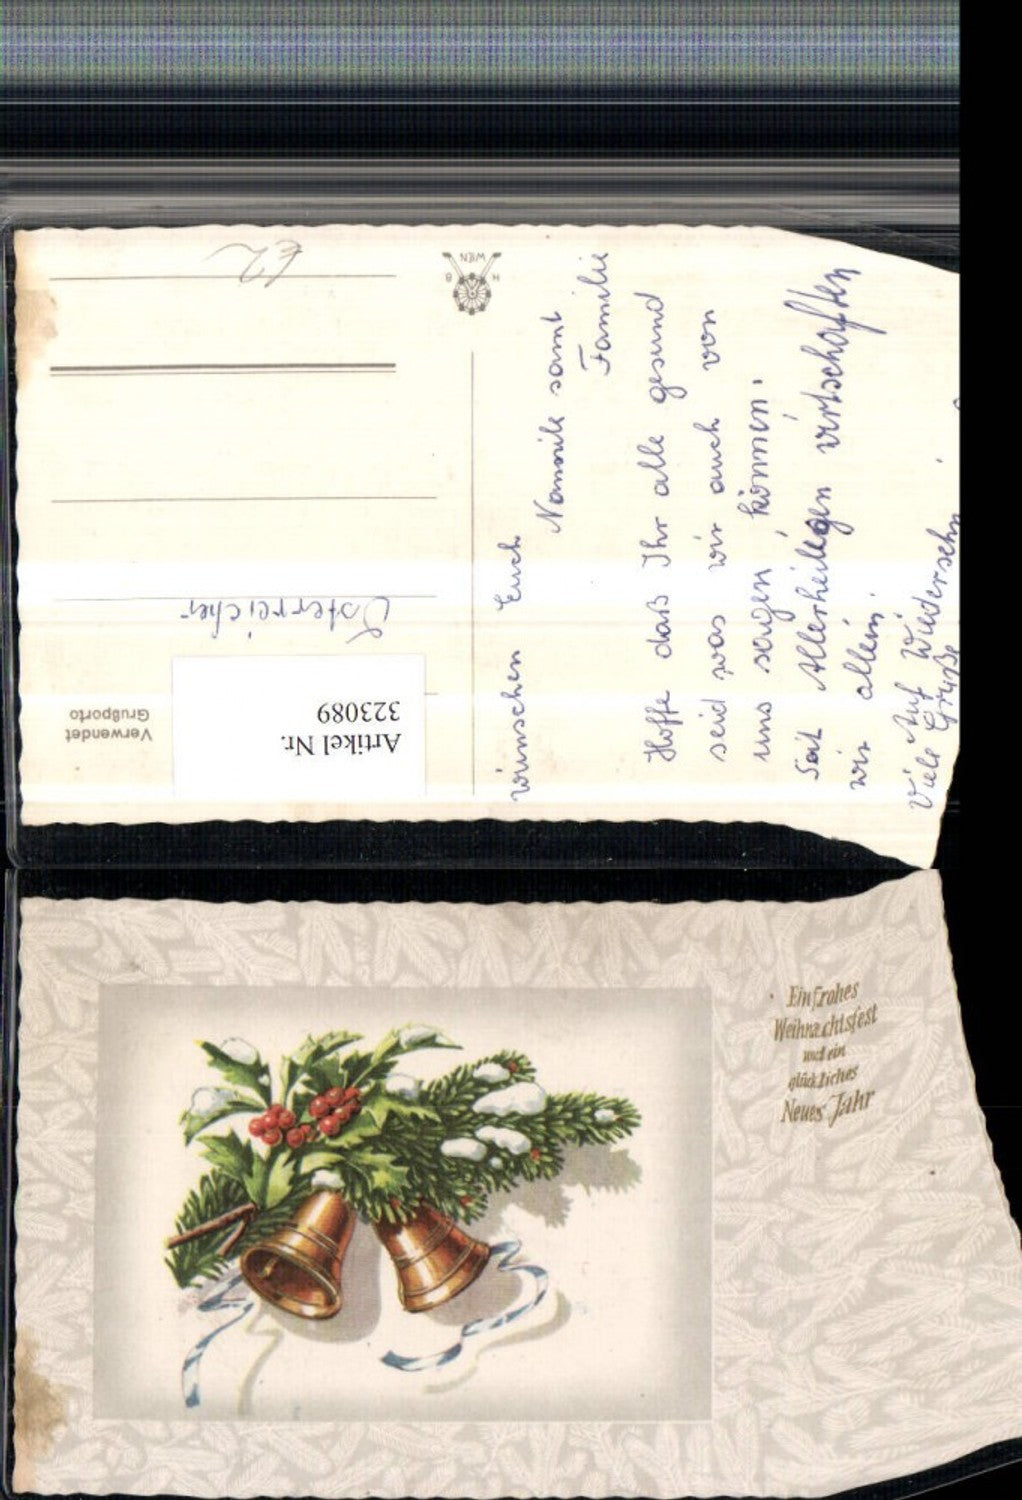 €2
WIEN
H B
Österreicher
Verwendet
Grußporto
Artikel Nr.
323089
wünschen Euch
samt
Familie
Hoffe daß Ihr alle gesund
seid was wir auch von
uns sagen können.
Seit Allerheiligen wirtschaften
wir allein.
Auf Wiedersehn
Viele Grüße
Ein frohes
Weihnachtsfest
und ein
glückliches
Neues Jahr